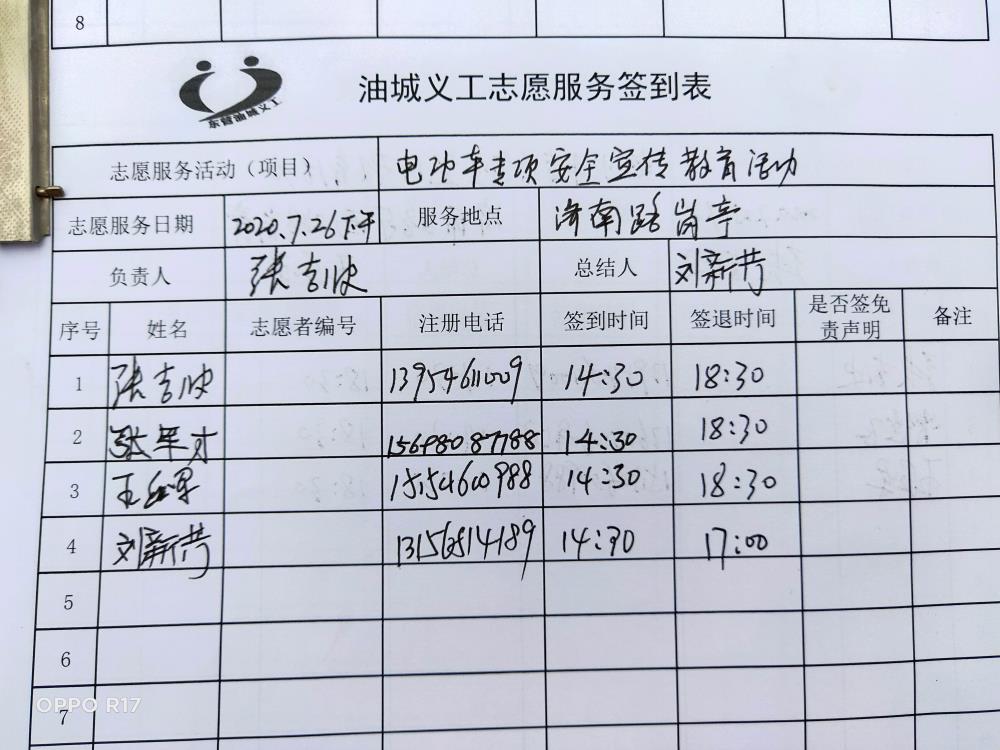 8
东营油城义工
油城义工志愿服务签到表
志愿服务活动（项目） 电动车专项安全宣传教育活动
志愿服务日期 2020.7.26下午 服务地点 济南路岗亭
负责人 张吉 总结人 刘新芳
序号 姓名 志愿者编号 注册电话 签到时间 签退时间 是否签免责声明 备注
1 张吉 13954611009 14:30 18:30
2 张军才 15698087788 14:30 18:30
3 王 15154600988 14:30 18:30
4 刘新芳 14:30 17:00
5
6
7
OPPO R17